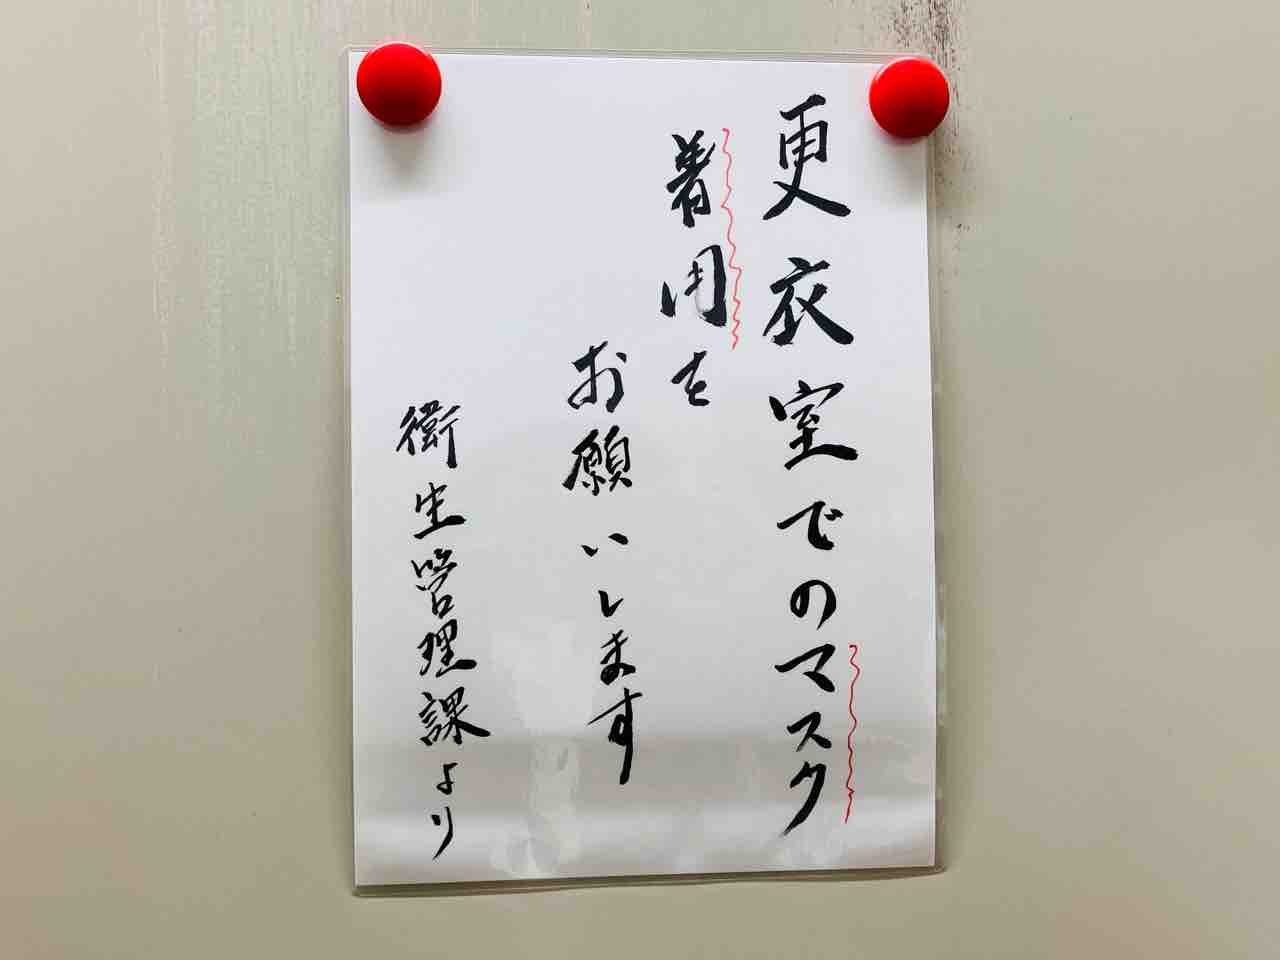 更衣室でのマスク
着用を
お願いします
衛生管理課より